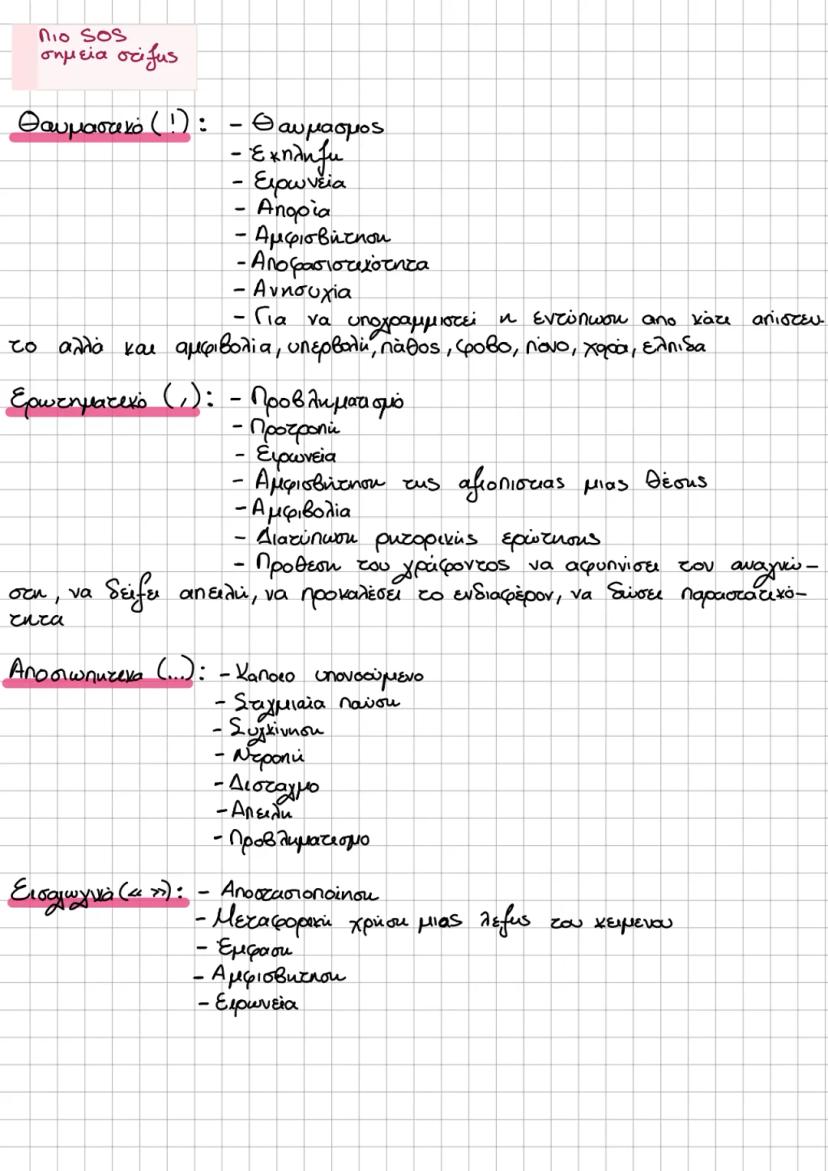 Πιο SOS
σημεία στίξης
Θαυμαστικό (!): - Θαυμασμος
- Έκπληξη
- Ειρωνεία
- Απορία
- Αμφισβήτηση
- Αποφασιστικότητα
- Ανησυχία
- Για να υπογραμμιστεί η εντύπωση απο κάτι απίστευ
το αλλά και αμφιβολία, υπερβολή, πάθος, φοβο, πόνο, χαρά, ελπιδα
Ερωτηματικό (;): - Προβληματισμό
- Προτροπή
- Ειρωνεία
- Αμφισβήτηση της αξιοπιστιας μιας θέσης
- Αμφιβολία
- Διατύπωση ρητορικής ερώτησης
- Προθεση του γράφοντος να αφυπνισει τον αναγνώ-
στη, να δείξει απειλή, να προκαλέσει το ενδιαφέρον, να δώσει παραστατικό-
τητα
Αποσιωπητικα (...): - Καποιο υπονοούμενο
- Στιγμιαία παύση
- Συγκίνηση
- Ντροπή
- Δισταγμο
- Απειλη
- Προβληματισμο
Εισαγωγικά (« »): - Αποστασιοποίηση
- Μεταφορική χρήση μιας λέξης του κειμενου
- Έμφαση
- Αμφισβητηση
- Ειρωνεία